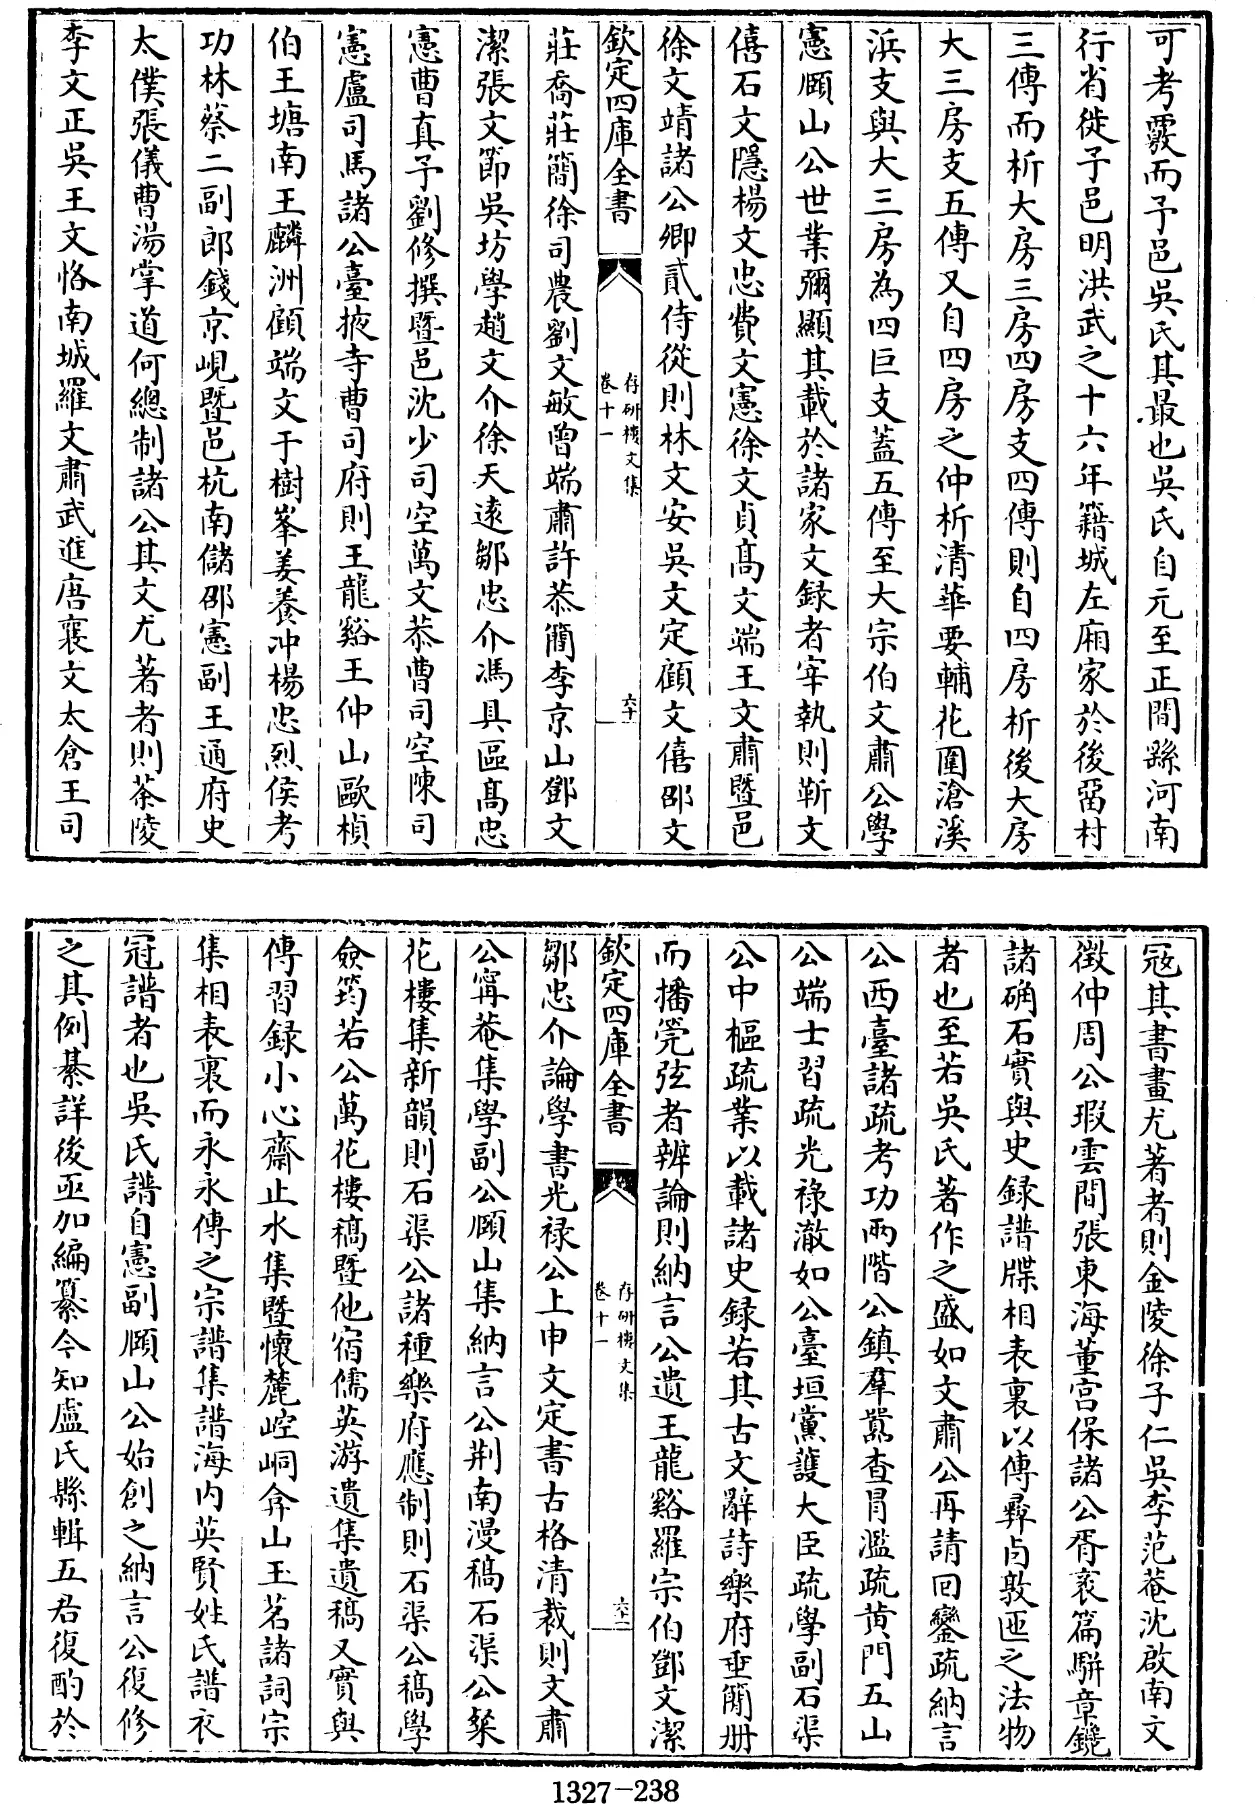 可考覈而予邑吳氏其最也吳氏自元至正間繇河南
行省徙予邑明洪武之十六年籍城左廂家於後畱村
三傳而析大房三房四房支四傳則自四房析後大房
大三房支五傳又自四房之仲析清華要輔花園滄溪
浜支與大三房為四巨支蓋五傳至大宗伯文肅公學
憲頤山公世業彌顯其載於諸家文録者宰執則靳文
僖石文隱楊文忠費文憲徐文貞高文端王文肅暨邑
徐文靖諸公卿貳侍從則林文安吳文定顧文僖邵文
欽定四庫全書
存研樓文集
卷十一
六十
莊喬莊簡徐司農劉文敏曾端肅許恭簡李京山鄧文
潔張文節吳坊學趙文介徐天逺鄒忠介馮具區高忠
憲曹真予劉修撰暨邑沈少司空萬文恭曹司空陳司
憲盧司馬諸公臺掖寺曹司府則王龍谿王仲山歐楨
伯王塘南王麟洲顧端文于樹峯姜養冲楊忠烈侯考
功林蔡二副郎錢京峴暨邑杭南儲邵憲副王通府史
太僕張儀曹湯掌道何總制諸公其文尤著者則茶陵
李文正吳王文恪南城羅文肅武進唐襄文太倉王司
寇其書畫尤著者則金陵徐子仁吳李范菴沈啟南文
徵仲周公瑕雲間張東海董宮保諸公胥裒篇駢章鐫
諸确石實與史録譜牒相表裏以傳彛卣敦匜之法物
者也至若吳氏著作之盛如文肅公再請回鑾疏納言
公西臺諸疏考功兩階公鎮羣嚚查冐濫疏黄門五山
公端士習疏光祿澈如公臺垣黨護大臣疏學副石渠
公中樞疏業以載諸史録若其古文辭詩樂府垂簡册
而播筦弦者辨論則納言公遺王龍谿羅宗伯鄧文潔
欽定四庫全書
存研樓文集
卷十一
六十一
鄒忠介論學書光禄公上申文定書古格清裁則文肅
公寗菴集學副公頤山集納言公荆南漫稿石渠公粲
花樓集新韻則石渠公諸種樂府應制則石渠公稿學
僉筠若公萬花樓稿暨他宿儒英游遺集遺稿又實與
傳習録小心齋止水集暨懷麓崆峒弇山玉茗諸詞宗
集相表裏而永永傳之宗譜集譜海内英賢姓氏譜衣
冠譜者也吳氏譜自憲副頤山公始創之納言公復修
之其例綦詳後亟加編纂今知盧氏縣輯五君復酌於
1327-238